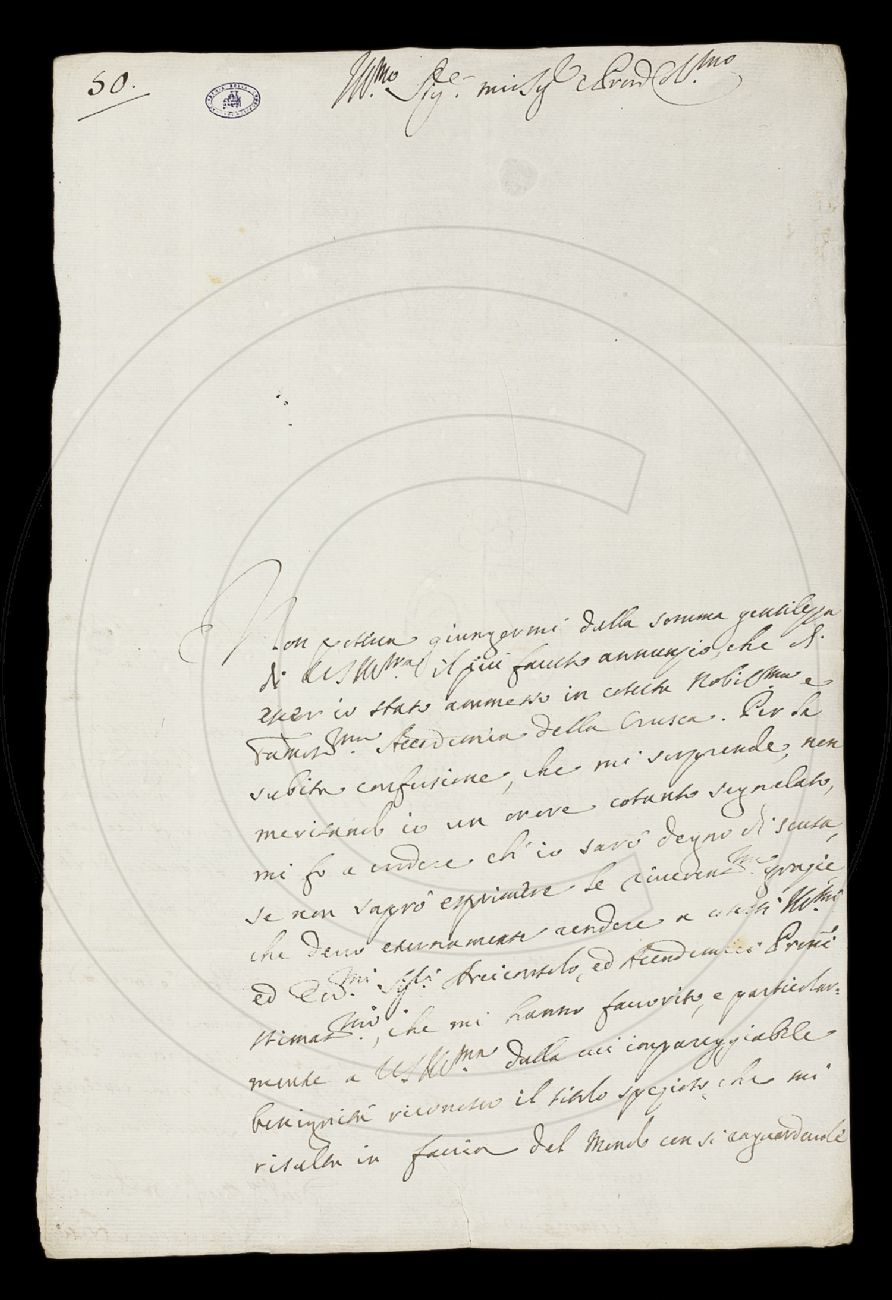 50.
Ill.mo Sig.re mio Sig.re e Pron Col.mo
Non poteva giungermi dalla somma gentilezza
di V.S. Ill.ma il più fausto annunzio, che di
esser io stato ammesso in cotesta Nobil.ma e
Famos.ma Accademia della Crusca. Per la
subita confusione, che mi sorprende, non
meritando io un onore cotanto segnalato,
mi fo a credere ch'io sarò degno di scusa,
se non saprò esprimere le riverent.me grazie
che devo eternamente rendere a cotesti Ill.mi
ed Rev.mi Sig.ri Arciconsolo, ed Accademici Proni
stimat.mi, che mi hanno favorito, e particolar-
mente a V.S. Ill.ma dalla cui impareggiabile
benignità riconosco il titolo spezioso che mi
risulta in faccia del Mondo con sì raguardevole